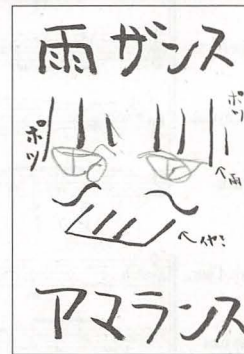 雨ザンス
ポツ
ポツ
←雨
アマランス